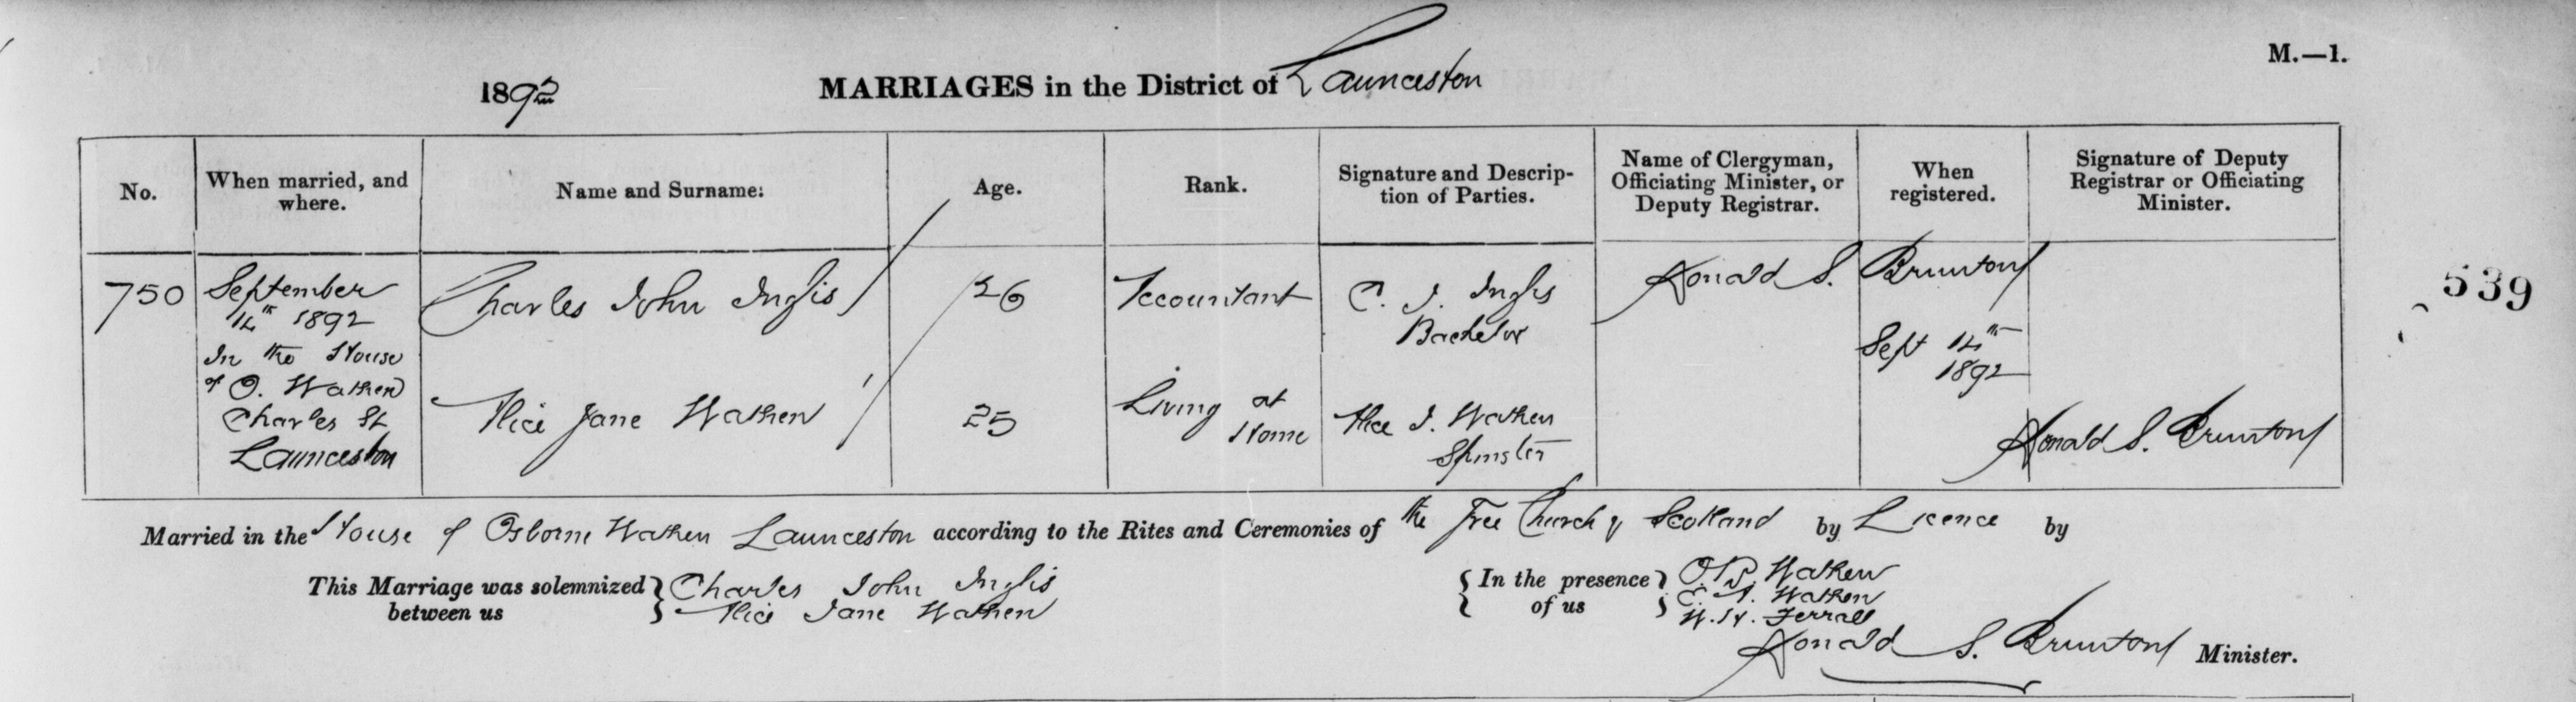 M.—1.
1892 MARRIAGES in the District of Launceston
No.
When married, and
where.
Name and Surname.
Age.
Rank.
Signature and Descrip-
tion of Parties.
Name of Clergyman,
Officiating Minister, or
Deputy Registrar.
When
registered.
Signature of Deputy
Registrar or Officiating
Minister.
750
September
14th 1892
In the House
of O. Wathen
Charles St
Launceston
Charles John Inglis
Alice Jane Wathen
26
25
Accountant
Living at
Home
C. J. Inglis
Bachelor
Alice J. Wathen
Spinster
Donald S. Brunton
Sept 14th
1892
Donald S. Brunton
539
Married in the House of Osborne Wathen Launceston according to the Rites and Ceremonies of the Free Church of Scotland by Licence by
This Marriage was solemnized
between us
Charles John Inglis
Alice Jane Wathen
In the presence
of us
Wathen
E. A. Wathen
W. H. Ferrall
Donald S. Brunton Minister.